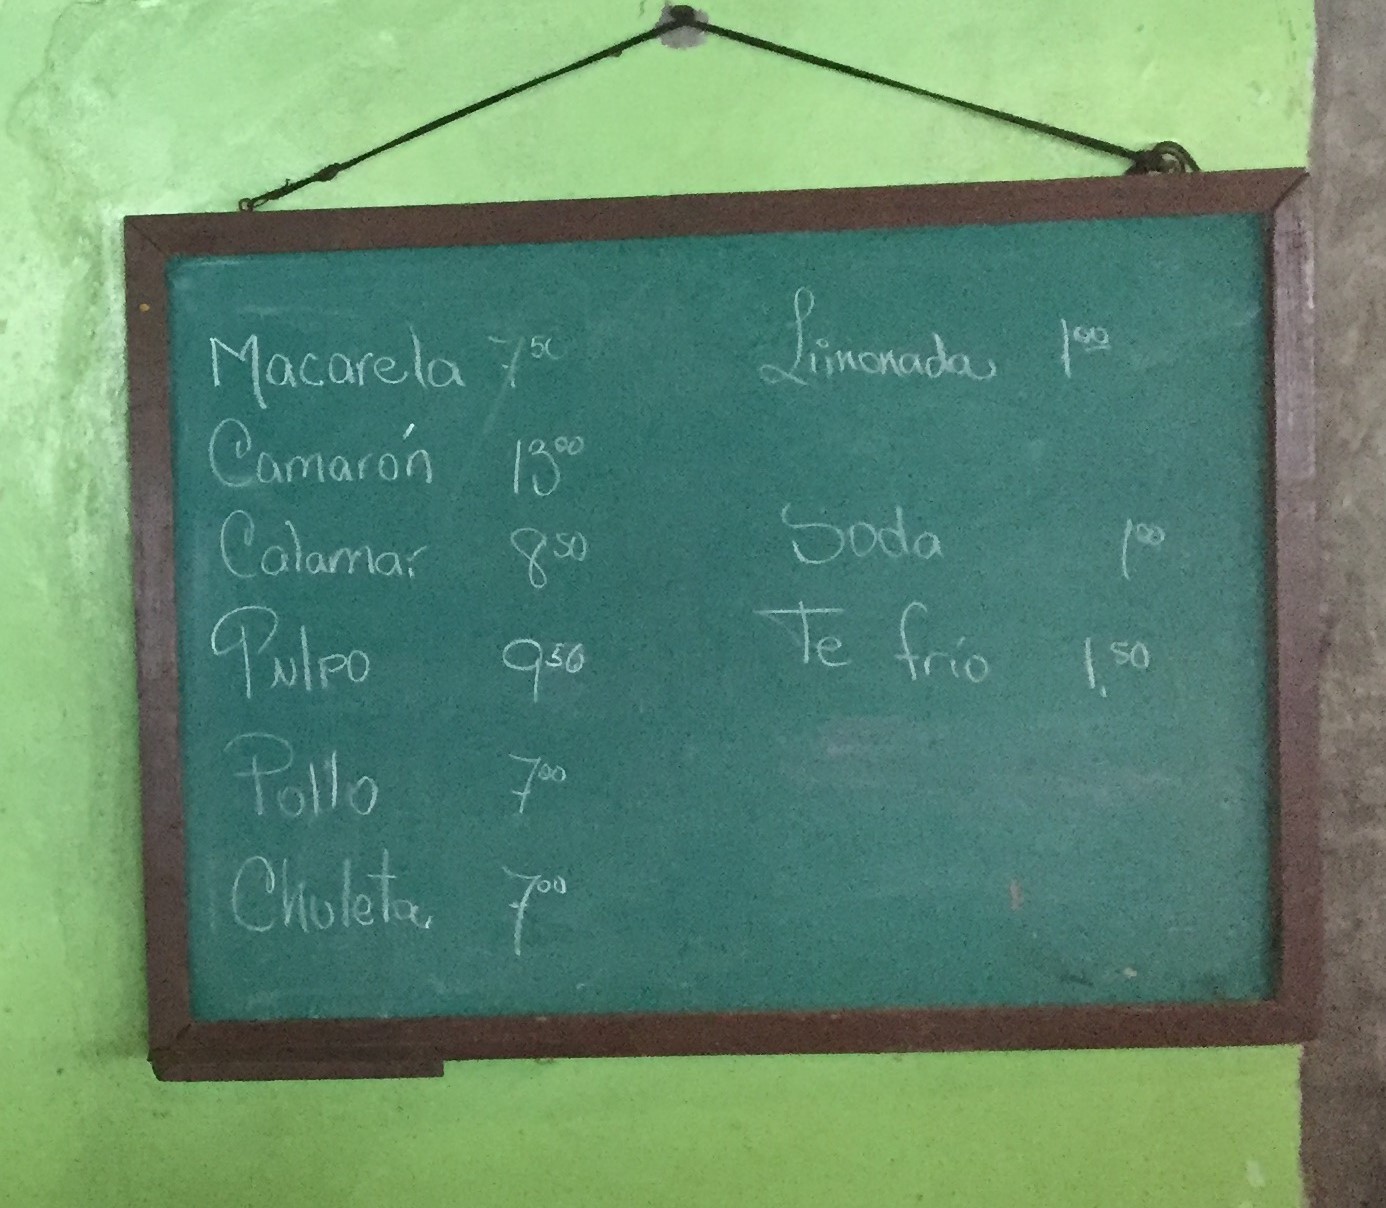 Macarela 7.50
Camarón 13.00
Calamar 8.50
Pulpo 9.50
Pollo 7.00
Chuleta 7.00
Limonada 1.00
Soda 1.00
Te frío 1.50